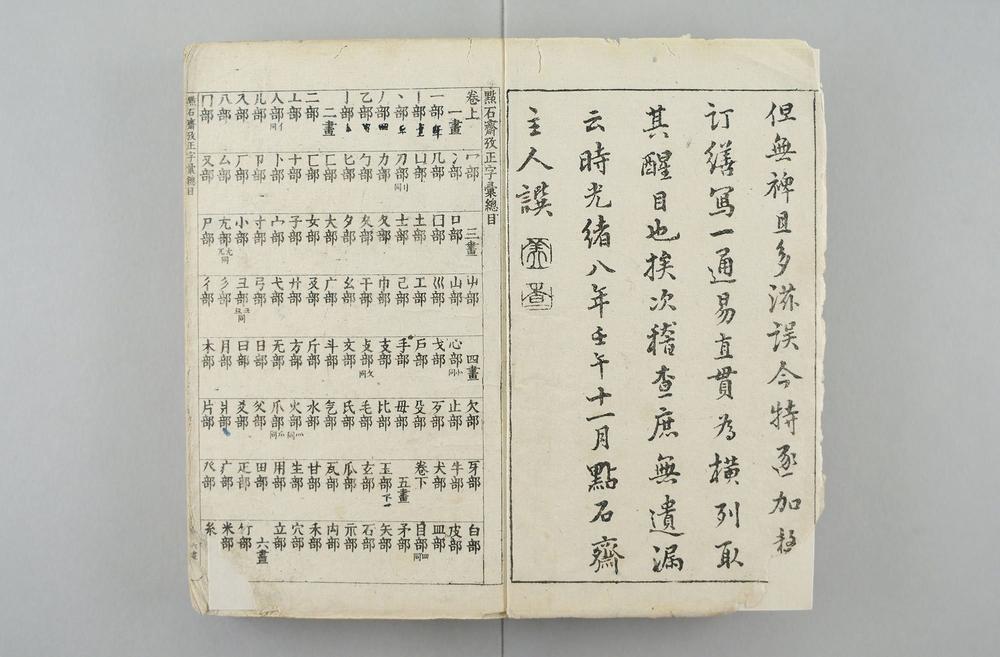 但無裨且多滋誤今特逐加
訂繕寫一通易直貫為橫列取
其醒目也挨次稽查庶無遺漏
云時光緒八年壬午十一月點石齋
主人譔
美查
點石齋攷正字彙總目
卷上 一畫 一部 丨部 丶部 丿部 乙部 亅部 二畫 二部 亠部 人部亻同 儿部 入部 八部 冂部
冖部 冫部 几部 凵部 刀部刂同 力部 勹部 匕部 匚部 匸部 十部 卜部 卩部 厂部 厶部 又部
三畫 口部 囗部 土部 士部 夂部 夊部 夕部 大部 女部 子部 宀部 寸部 小部 尢部 尸部
屮部 山部 巛部 工部 己部 巾部 干部 幺部 广部 廴部 廾部 弋部 弓部 彐部 彡部 彳部
四畫 心部忄同 戈部 戶部 手部 支部 攴部攵同 文部 斗部 斤部 方部 无部 日部 曰部 月部 木部
欠部 止部 歹部 殳部 毋部 比部 毛部 氏部 气部 水部 火部灬同 爪部爫同 父部 爻部 爿部 片部
牙部 牛部 犬部 卷下 五畫 玉部 玄部 瓜部 瓦部 甘部 生部 用部 田部 疋部 疒部 癶部
白部 皮部 皿部 目部罒同 矛部 矢部 石部 示部 禸部 禾部 穴部 立部 六畫 竹部 米部 糸
點石齋攷正字彙總目